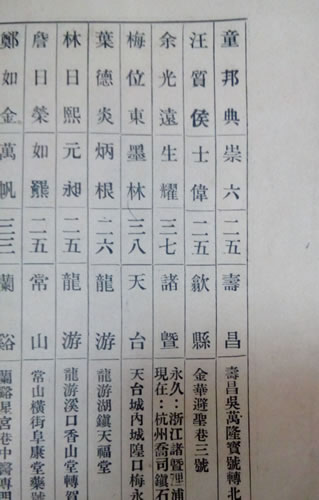 童邦典 崇六 二五 壽昌 壽昌吳萬隆寶號轉北
汪質侯 士偉 二五 歙縣 金華避聖巷三號
余光遠 生耀 三七 諸暨 永久：浙江諸暨浬浦 現在：杭州喬司鎮石
梅位東 墨林 三八 天台 天台城內城隍口梅永
葉德炎 炳根 二六 龍游 龍游湖鎮天福堂
林日熙 元昶 二五 龍游 龍游溪口香山堂轉賀
詹日榮 如羆 二五 常山 常山橫街阜康堂藥號
鄭如金 萬帆 三三 蘭谿 蘭谿星宮巷中醫專門